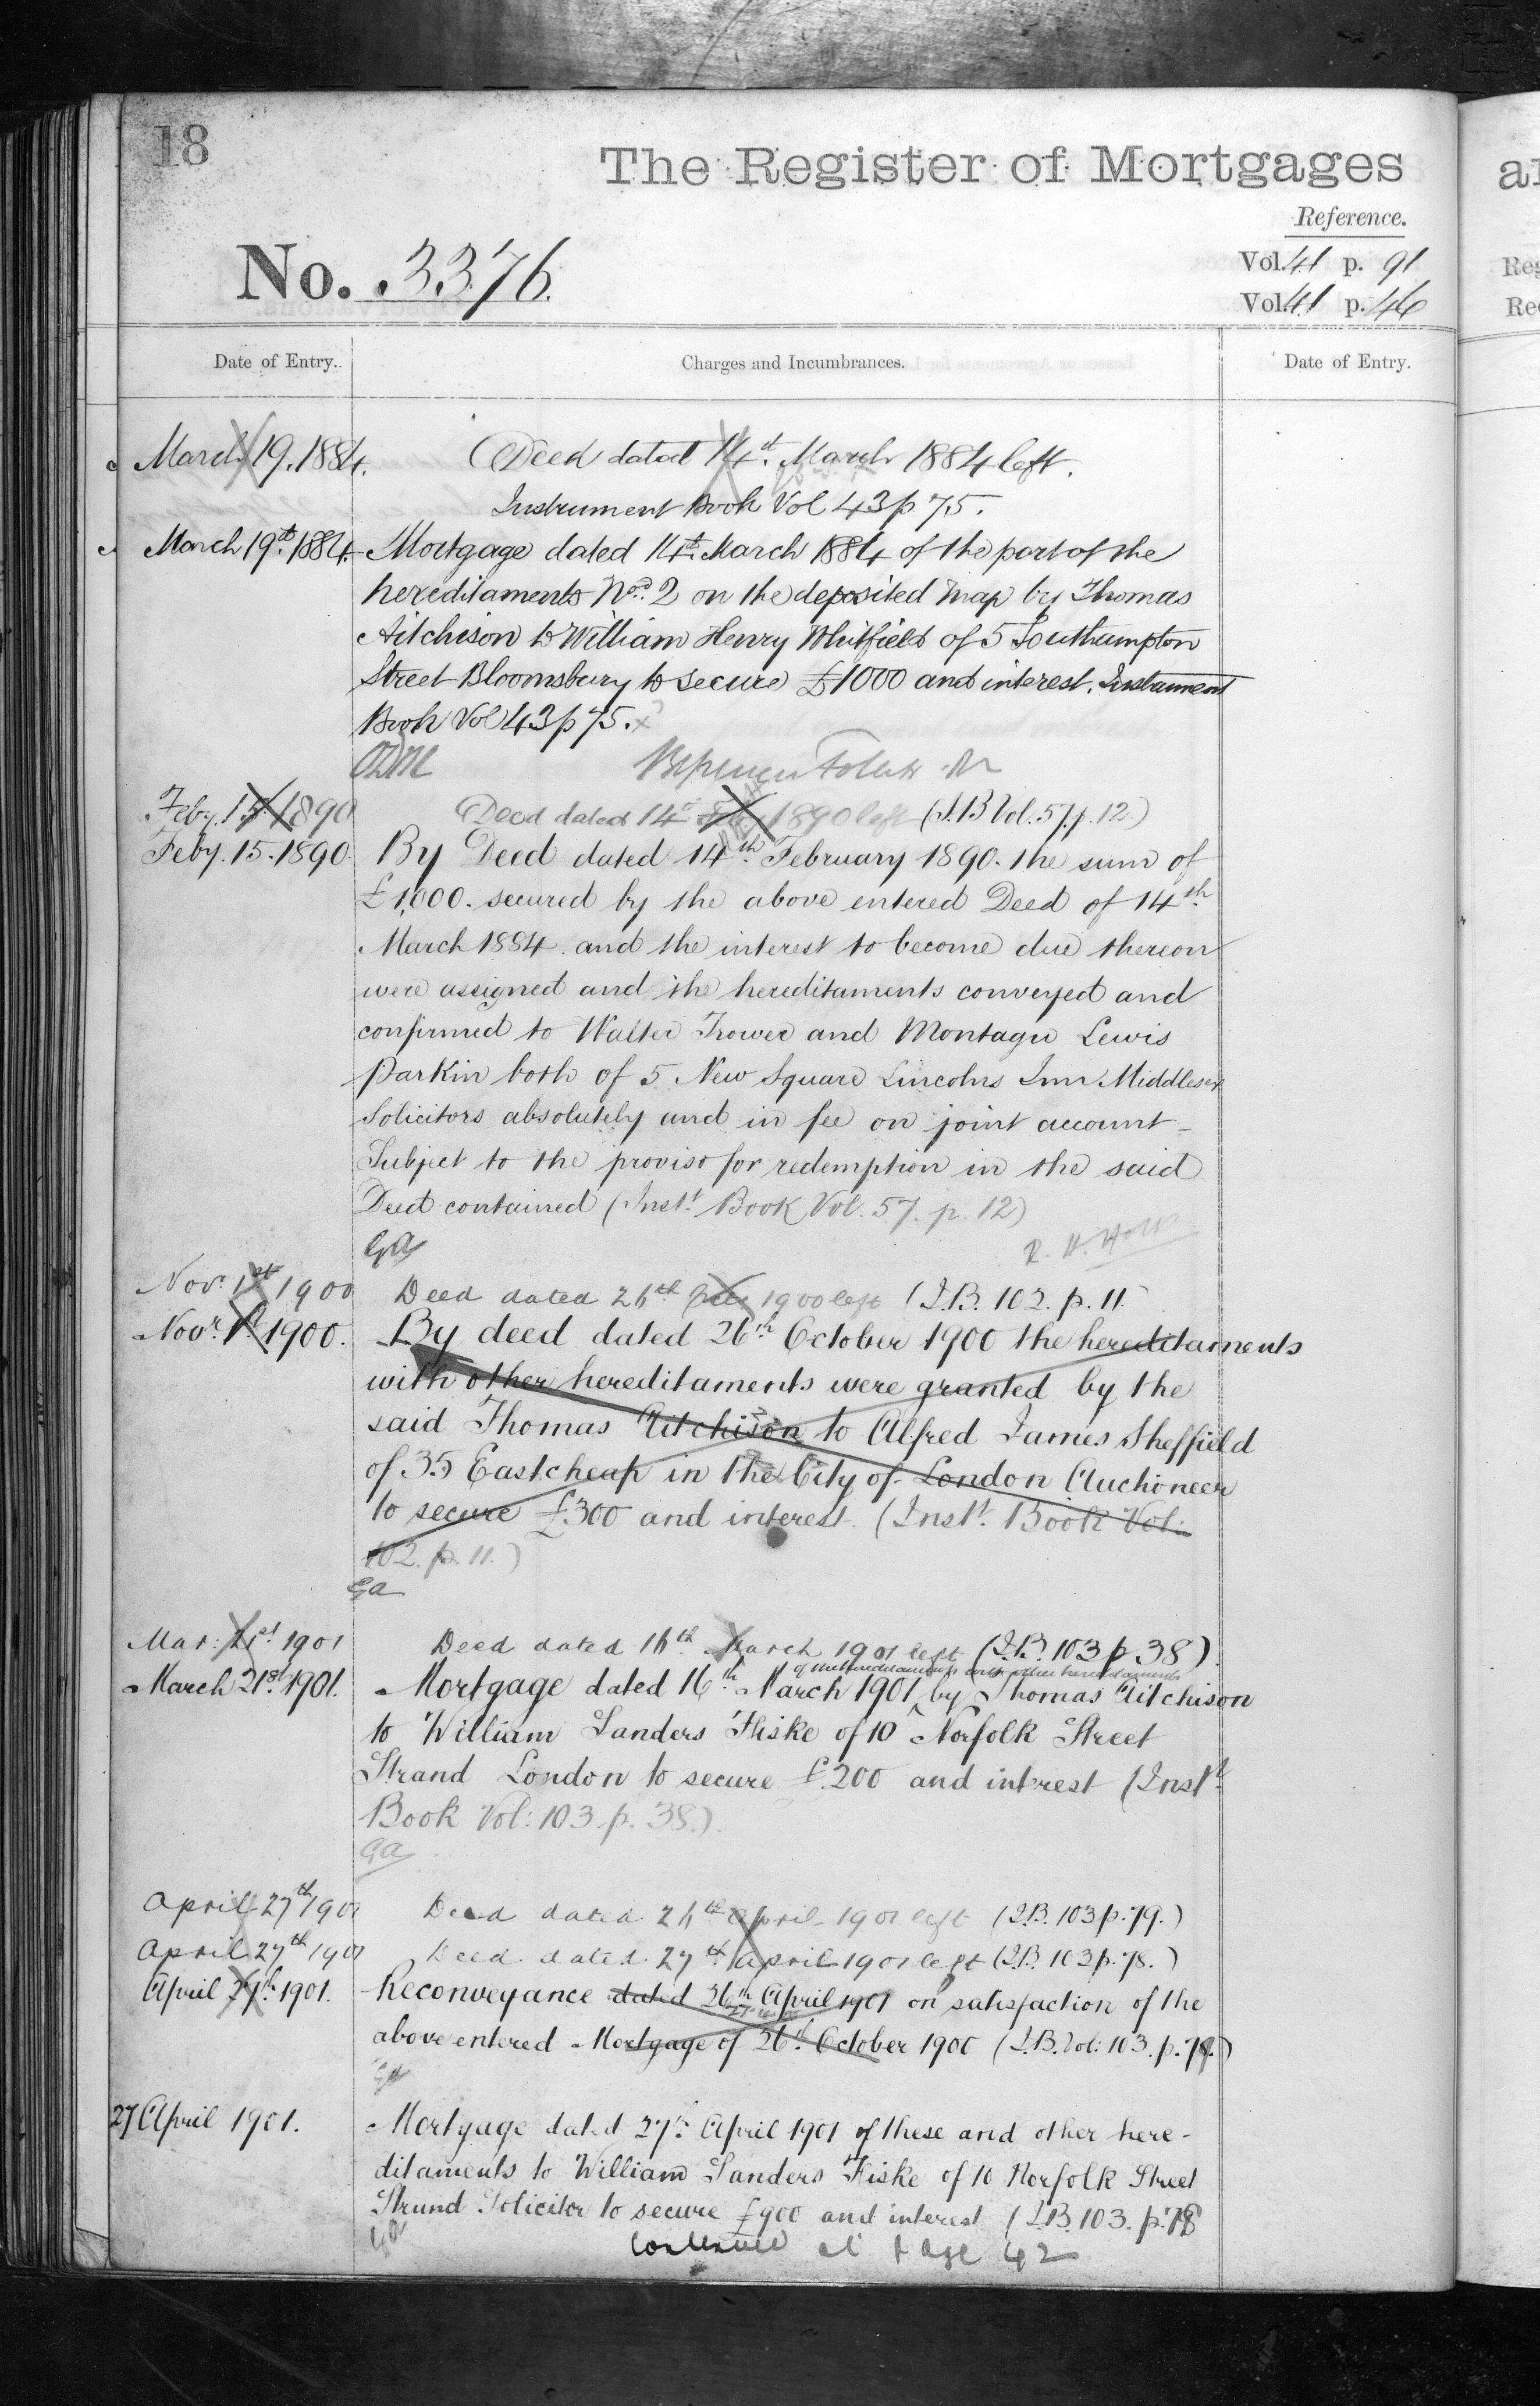 18
The Register of Mortgages
Reference.
No. 3376.
Vol. 41 p. 91
Vol. 41 p. 46
Date of Entry. Charges and Incumbrances. Date of Entry.
March 19. 1884. Deed dated 14th. March 1884 left.
Instrument Book Vol 43 p 75.
March 19th. 1884. Mortgage dated 14th. March 1884 of the part of the
hereditaments Nod. 2 on the deposited map by Thomas
Aitchison to William Henry Whitfield of 5 Southampton
Street Bloomsbury to secure £1000 and interest. Instrument
Book Vol 43 p 75.
Feby. 15. 1890 Deed dated 14th Feby 1890 left (I.B Vol. 57. p. 12)
Feby. 15. 1890. By Deed dated 14th. February 1890. the sum of
£1,000. secured by the above entered Deed of 14th.
March 1884. and the interest to become due thereon
were assigned and the hereditaments conveyed and
confirmed to Walter Trower and Montagu Lewis
Parkin both of 5 New Square Lincolns Inn Middlesex
Solicitors absolutely and in fee on joint account –
Subject to the proviso for redemption in the said
Deed contained (Inst.t Book Vol. 57. p. 12)
GA
Novr. 1st 1900 Deed dated 26th 1900 left (I.B. 102. p. 11
Novr. 1st 1900. By deed dated 26th. October 1900 the hereditaments
with other hereditaments were granted by the
said Thomas Aitchison to Alfred James Sheffield
of 35 Eastcheap in the City of London Auctioneer
to secure £300 and interest. (Inst.t Book Vol:
102. p. 11.)
Ga
Mar: 21st 1901 Deed dated 16th March 1901 left (I.B. 103 p 38)
of these hereditaments with other hereditaments
March 21st. 1901. Mortgage dated 16th. March 1901 ‸ by Thomas Aitchison
to William Sanders Fiske of 10 Norfolk Street
Strand London to secure £200 and intrest (Inst.t
Book Vol: 103. p. 38.)
GA
April 27th 1901 Deed dated 26th April 1901 left (I.B. 103 p. 79.)
April 27th 1901 Deed dated 27th April 1901 left (I.B. 103 p. 78.)
April 27th. 1901. Reconveyance dated 26th April 1901 on satisfaction of the
above entered Mortgage of 26th. October 1900 (I.B. Vol: 103. p. 79.)
27 April 1901. Mortgage dated 27th. April 1901 of these and other here-
ditaments to William Sanders Fiske of 10 Norfolk Street
Strand Solicitor to secure £900 and interest (I.B. 103. p. 78
GA
Continued at page 42